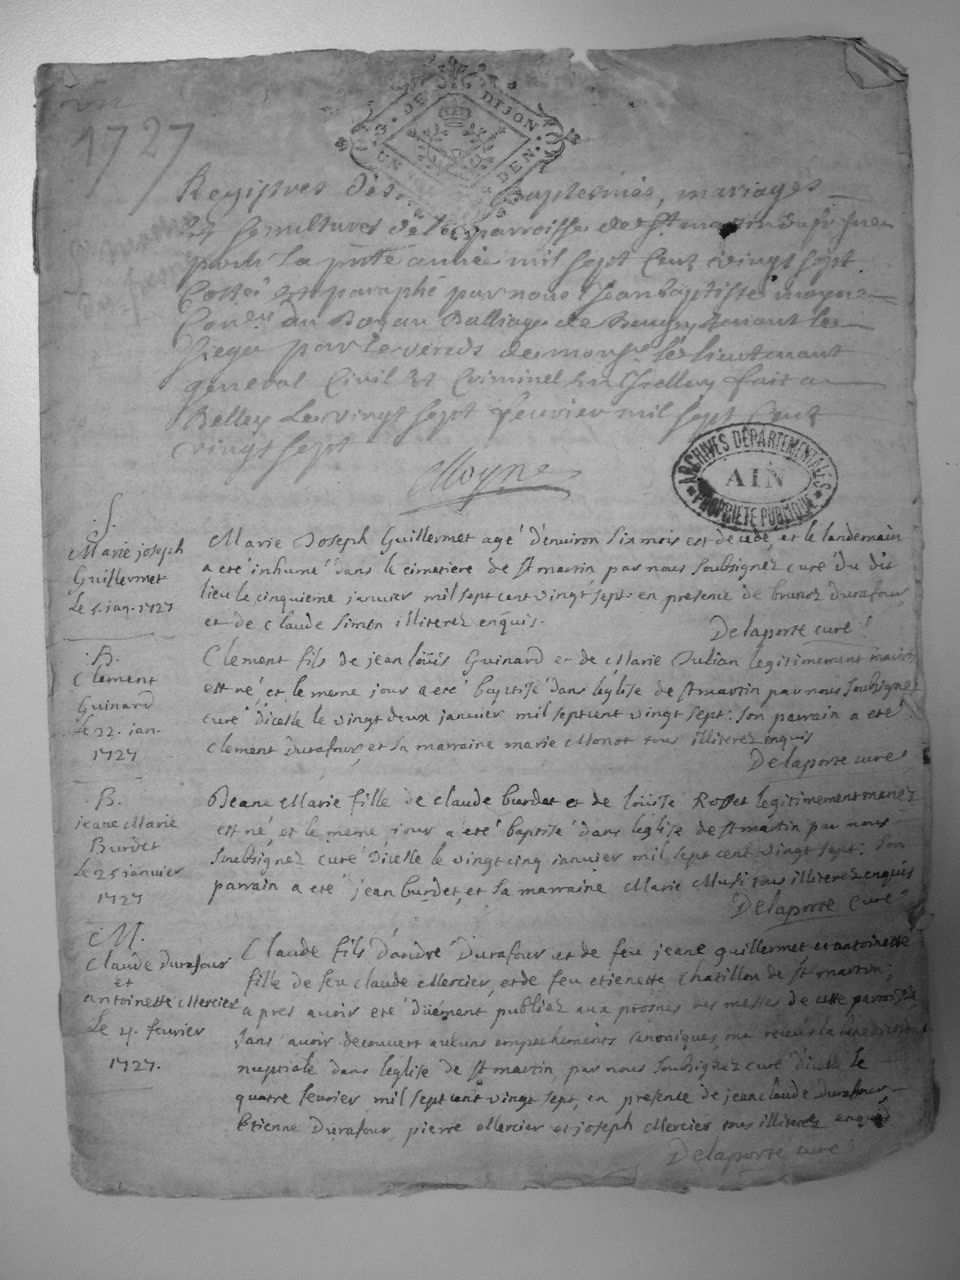 1727
DE DIJON
UN DEN
Registres des Baptesmes, mariages
Et Sepultures de la parroisse de St martin
pour la pnte année mil sept Cent vingt sept
Cotté et paraphé par nous Jean baptiste moyne
Coner du Roy au Balliage de Beugey tenant le
siege par le deceds de monsr le lieutenant
general Civil et Criminel fait a
Belley le vingt sept feuvrier mil sept Cent
vingt sept
Moyne
ARCHIVES DÉPARTEMENTALES
AIN
PROPRIÉTÉ PUBLIQUE
S.
Marie joseph
Guillermet
Le 5. jan. 1727
Marie Joseph Guillermet agé d'environ six mois est decedé, et le landemain
a eté inhumé dans le cimetiere de st martin par nous soubsignez curé du dit
lieu le cinquieme janvier mil sept cent vingt sept. en presence de durafour
et de claude simon illiterez enquis.
Delaporte curé
B.
Clement
Guinard
Le 22. jan.
1727
Clement fils de jean loüis Guinard et de Marie Julian legitimement mariez
est né, et le meme jour a eté baptisé dans leglise de st martin par nous soubsignez
curé dicelle le vingt deux janvier mil sept cent vingt sept: son parrain a eté
clement durafour, et sa marraine marie Monot tous illiterez enquis
Delaporte curé
B.
jeane Marie
Burdet
Le 25 janvier
1727
Jeane Marie fille de claude burdet et de loüise Rosset legitimement mariez
est né, et le meme jour a eté baptisé dans leglise de st martin par nous
soubsignez curé dicelle le vingt cinq janvier mil sept cent vingt sept: son
parrain a eté jean burdet, et sa marraine Marie tous illiterez enquis
Delaporte curé
M.
Claude Durafour
et
antoinette Mercier
Le 4. fevrier
1727.
Claude fils d'andré Durafour et de feu jeane guillermet et antoinette
fille de feu claude Mercier, et de feu etienette chatillon de st martin;
apres avoir eté düément publiez aux prosnes des messes de cette parroisse
sans avoir decouvert aucuns empechements canoniques, ont receu la benediction
nuptiale dans leglise de st martin par nous soubsignez curé dicelle le
quatre fevrier mil sept cent vingt sept, en presence de jean claude durafour,
Etienne Durafour, pierre Mercier et joseph Mercier tous illiterez enquis
Delaporte curé